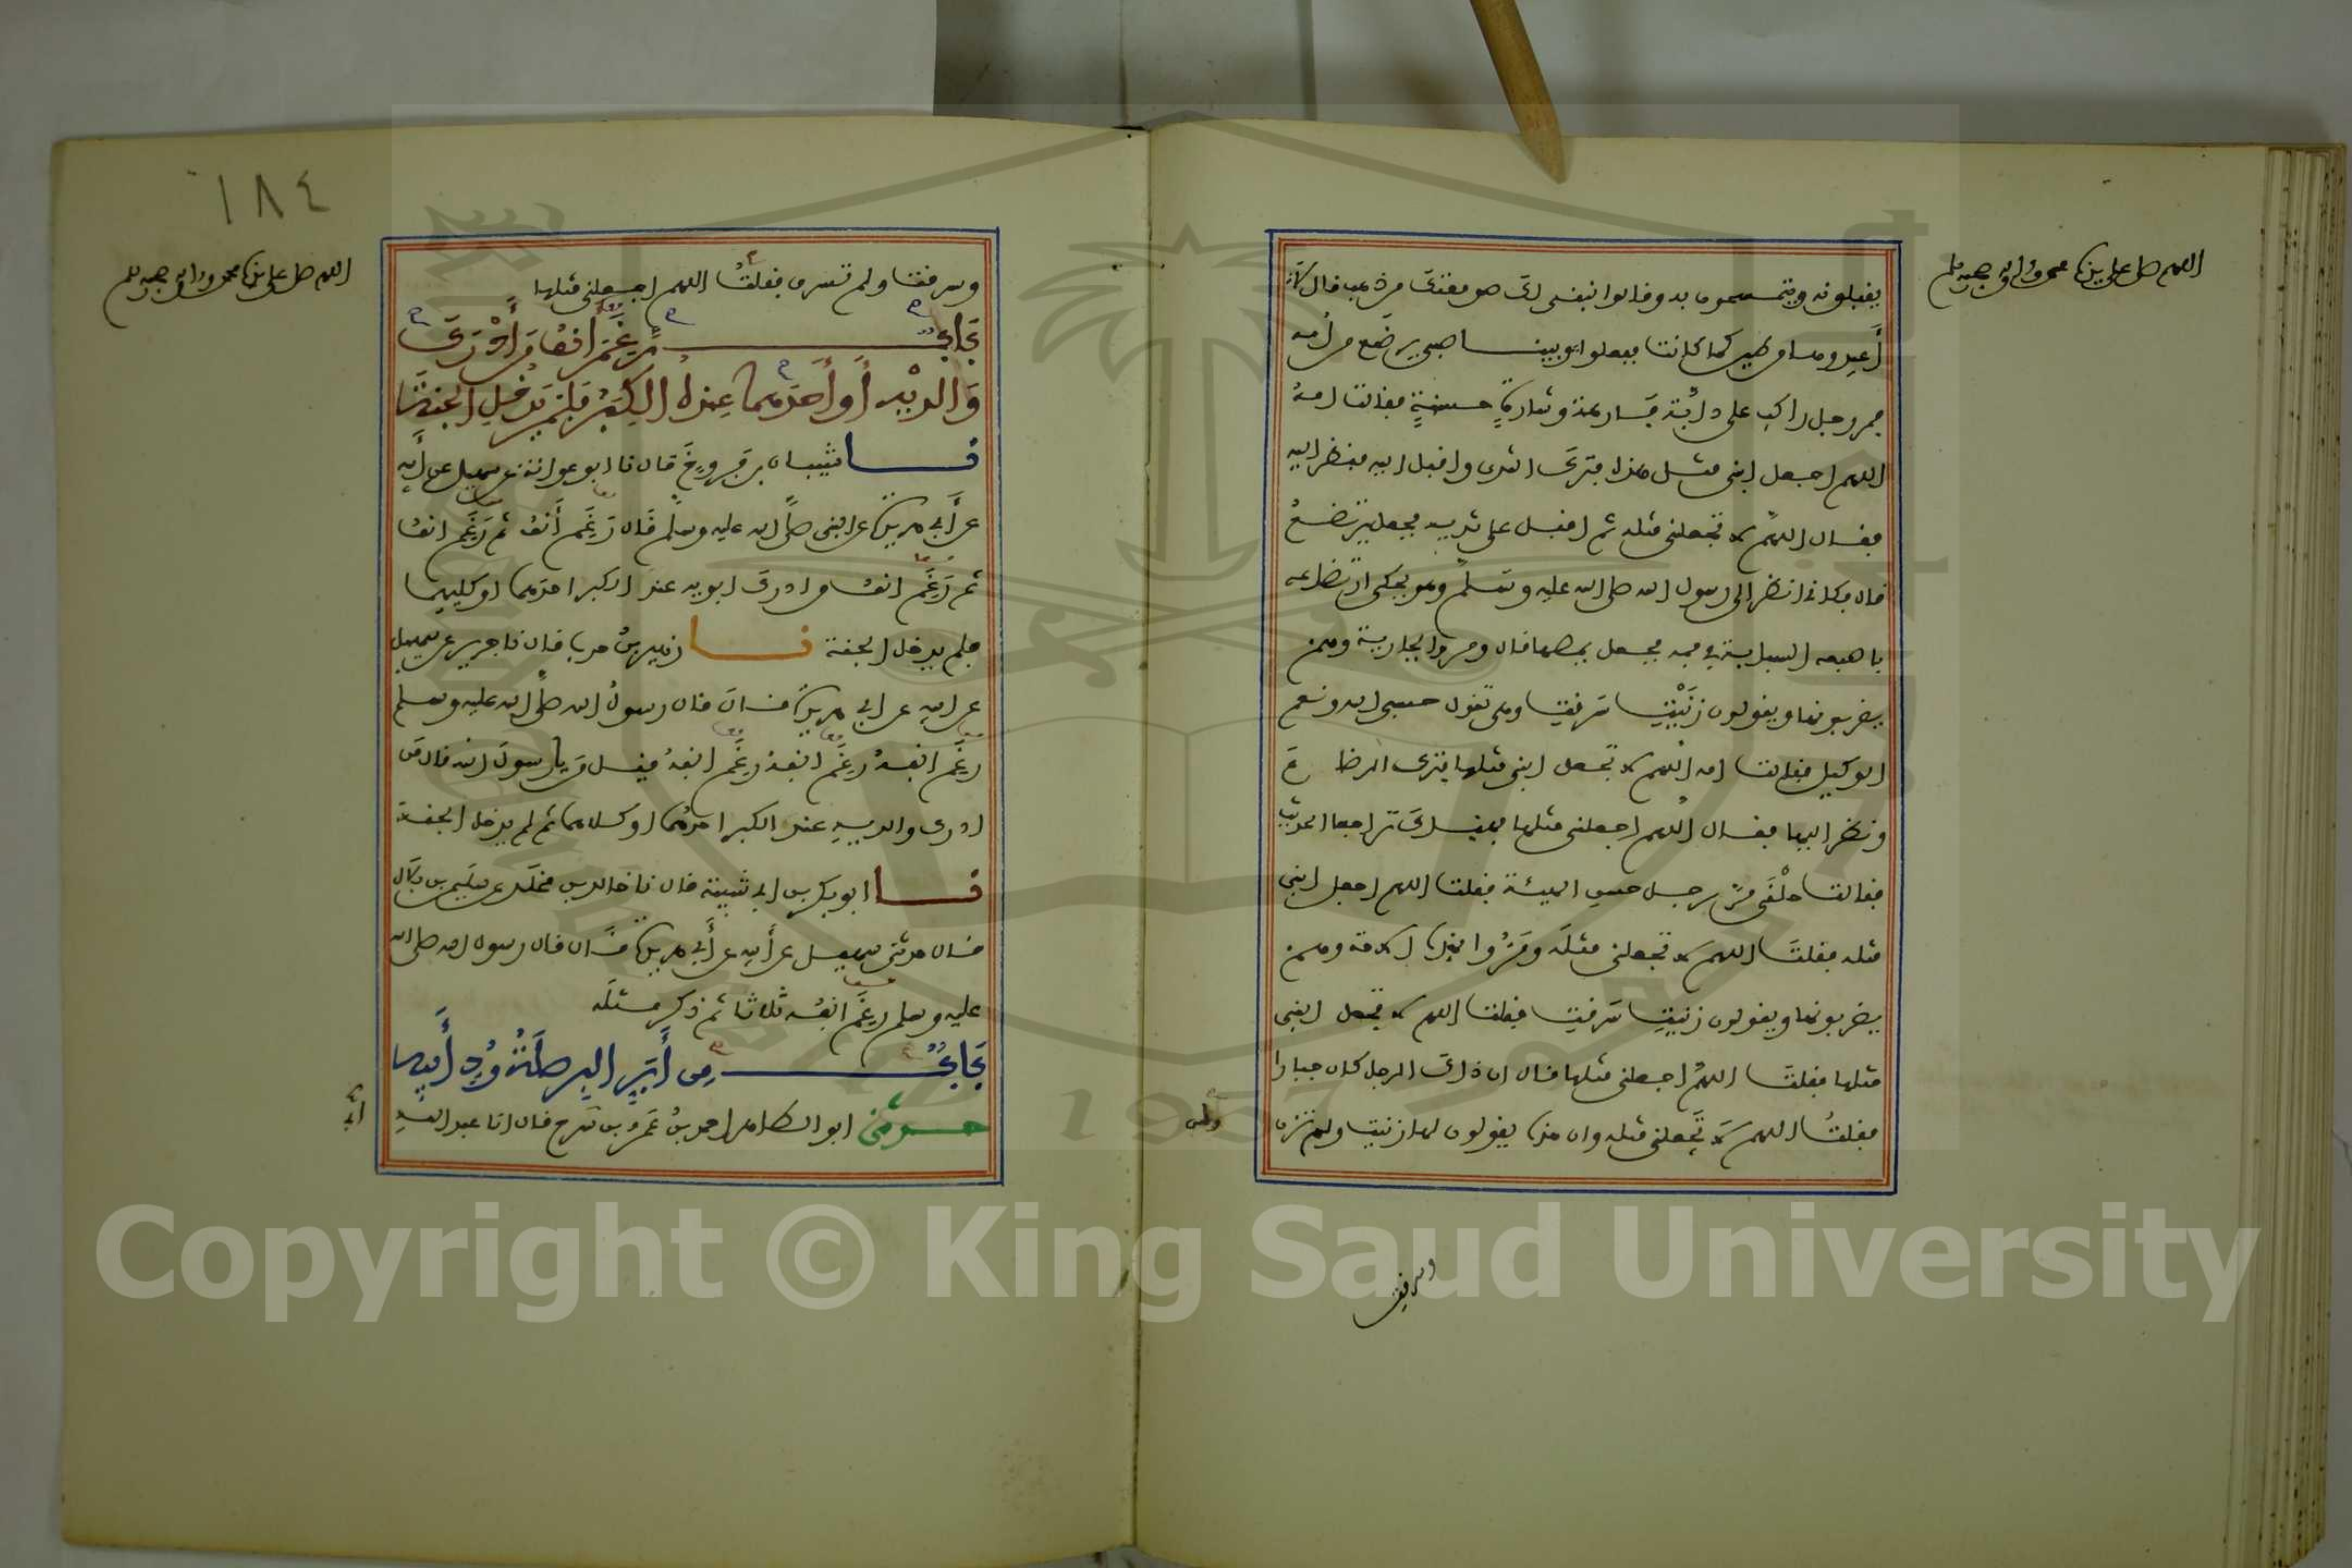 اللهم صل على سيدنا محمد واله وصحبه وسلم
يقبلونه ويتمسحون به وقالوا نبني لك صومعتك من ذهب قال لا
أعيدوها من طين كما كانت ففعلوا وبينا صبي يرضع من أمه
فمر رجل راكب على دابة فارهة وشارة حسنة فقالت امه
اللهم اجعل ابني مثل هذا فترك الثدي واقبل اليه فنظر اليه
فقال اللهم لا تجعلني مثله ثم اقبل على ثديه فجعل يرتضع
قال فكاني انظر الى رسول الله صلى الله عليه وسلم وهو يحكي ارتضاعه
باصبعه السبابة في فمه فجعل يمصها قال ومروا بجارية وهم
يضربونها ويقولون زنيت سرقت وهي تقول حسبي الله ونعم
الوكيل فقالت امه اللهم لا تجعل ابني مثلها فترك الرضاع
ونظر اليها فقال اللهم اجعلني مثلها فهناك تراجعا الحديث
فقالت حلقى مر رجل حسن الهيئة فقلت اللهم اجعل ابني
مثله فقلت اللهم لا تجعلني مثله ومروا بهذه الامة وهم
يضربونها ويقولون زنيت سرقت فقلت اللهم لا تجعل ابني
مثلها فقلت اللهم اجعلني مثلها قال ان ذاك الرجل كان جبارا
فقلت اللهم لا تجعلني مثله وان هذه يقولون لها زنيت ولم تزن
وسرقت
١٨٤
اللهم صل على سيدنا محمد واله وصحبه وسلم
وسرقت ولم تسرق فقلت اللهم اجعلني مثلها
باب رغم انف من أدرك
والديه أو أحدهما عند الكبر فلم يدخل الجنة
نا شيبان بن فروخ قال نا ابو عوانة عن سهيل عن أبيه
عن أبي هريرة عن النبي صلى الله عليه وسلم قال رغم أنف ثم رغم انف
ثم رغم انف من ادرك ابويه عند الكبر احدهما او كليهما
فلم يدخل الجنة نا زهير بن حرب قال نا جرير عن سهيل
عن ابيه عن ابي هريرة قال قال رسول الله صلى الله عليه وسلم
رغم انفه رغم انفه رغم انفه قيل من يا رسول الله قال من
ادرك والديه عند الكبر احدهما او كلاهما ثم لم يدخل الجنة
نا ابو بكر بن ابي شيبة قال نا خالد بن مخلد عن سليمن بن بلال
قال حدثني سهيل عن أبيه عن أبي هريرة قال قال رسول الله صلى الله
عليه وسلم رغم انفه ثلاثا ثم ذكر مثله
باب من أبر البر صلة ود أبيه
حدثني ابو الطاهر احمد بن عمرو بن سرح قال انا عبد الله
Copyright © King Saud University
1957